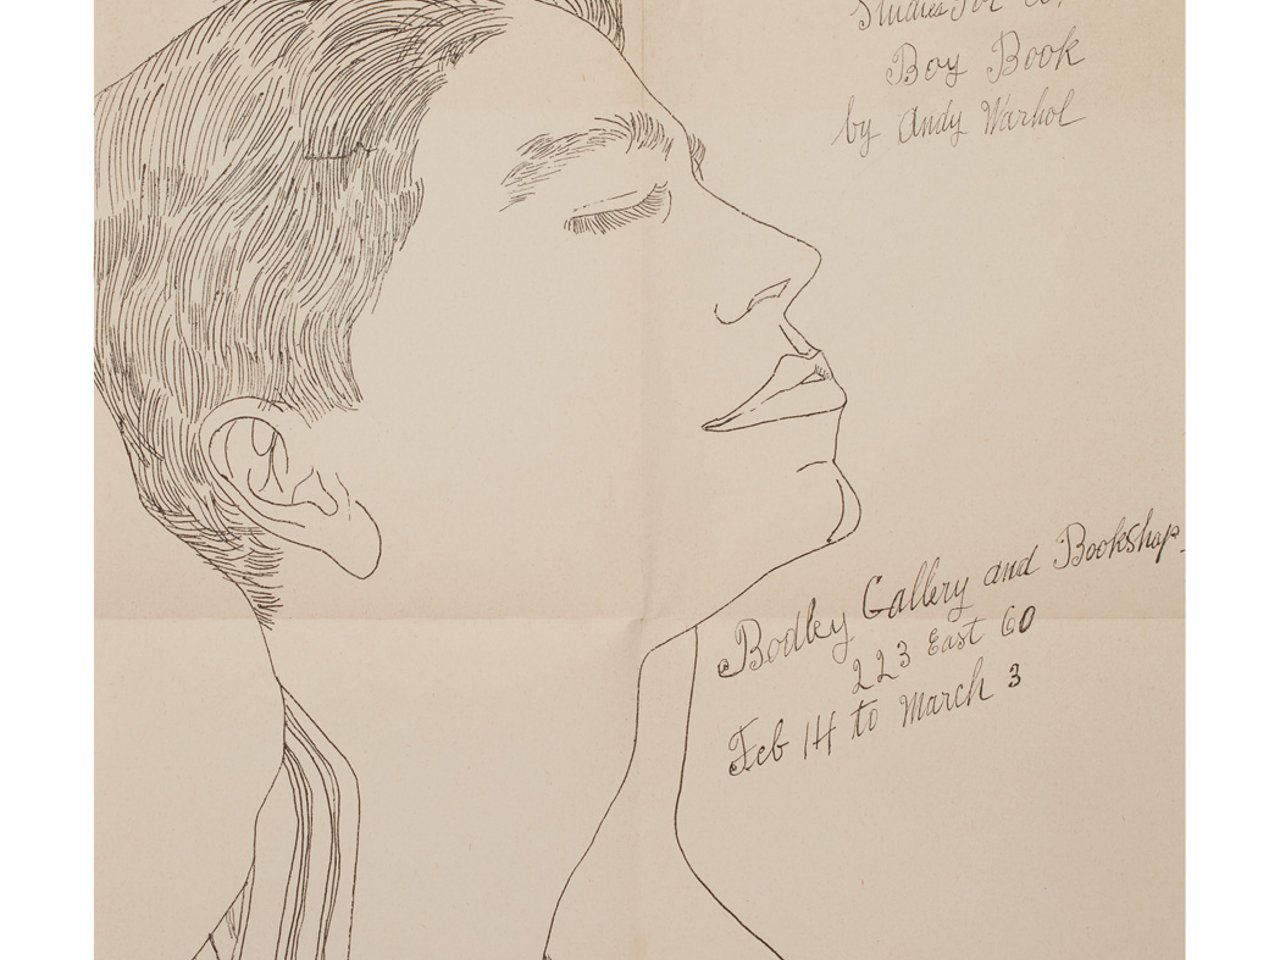 Studies for a
Boy Book
by Andy Warhol
Bodley Gallery and Bookshop
223 East 60
Feb 14 to March 3